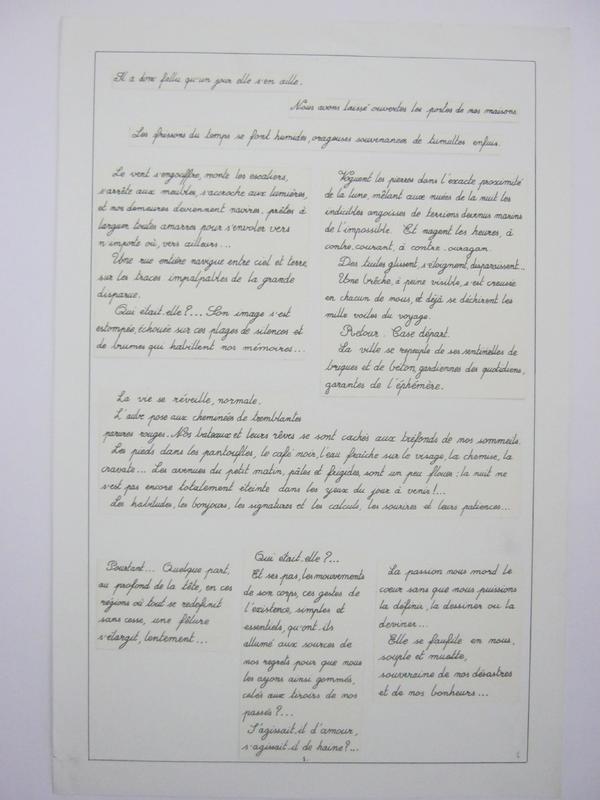 Il a donc fallu qu'un jour elle s'en aille.
Nous avons laissé ouvertes les portes de nos maisons.
Les frissons du temps se font humides, orageuses souvenances de tumultes enfuis.
Le vent s'engouffre, monte les escaliers,
s'arrête aux meubles, s'accroche aux lumières,
et nos demeures deviennent navires, prêtes à
larguer toutes amarres pour s'envoler vers
n'importe où, vers ailleurs...
Une rue entière navigue entre ciel et terre,
sur les traces impalpables de la grande
disparue.
Qui était-elle ?... Son image s'est
estompée, échouée sur ces plages de silences et
de brumes qui habillent nos mémoires...
Voguent les pierres dans l'exacte proximité
de la lune, mêlant aux nuées de la nuit les
indicibles angoisses de terriens devenus marins
de l'impossible. Et nagent les heures, à
contre-courant, à contre-ouragan.
Des tuiles glissent, s'éloignent, disparaissent...
Une brèche, à peine visible, s'est creusée
en chacun de nous, et déjà se déchirent les
mille voiles du voyage.
Retour. Case départ.
La ville se repeuple de ses sentinelles de
briques et de béton, gardiennes des quotidiens,
garantes de l'éphémère.
La vie se réveille, normale.
L'aube pose aux cheminées de tremblantes
parures rouges. Nos bateaux et leurs rêves se sont cachés aux tréfonds de nos sommeils.
Les pieds dans les pantoufles, le café noir, l'eau fraîche sur le visage, la chemise, la
cravate... Les avenues du petit matin, pâles et frigides, sont un peu floues : la nuit ne
s'est pas encore totalement éteinte dans les yeux du jour à venir !...
Les habitudes, les bonjours, les signatures et les calculs, les sourires et leurs patiences...
Pourtant... Quelque part,
au profond de la tête, en ces
régions où tout se redéfinit
sans cesse, une fêlure
s'élargit, lentement...
Qui était-elle ?...
Et ses pas, les mouvements
de son corps, ces gestes de
l'existence, simples et
essentiels, qu'ont-ils
allumé aux sources de
nos regrets pour que nous
les ayons ainsi gommés,
celés aux tiroirs de nos
passés ?...
S'agissait-il d'amour,
s'agissait-il de haine ?...
La passion nous mord le
cœur sans que nous puissions
la définir, la dessiner ou la
deviner...
Elle se faufile en nous,
souple et muette,
souveraine de nos désastres
et de nos bonheurs...
1.